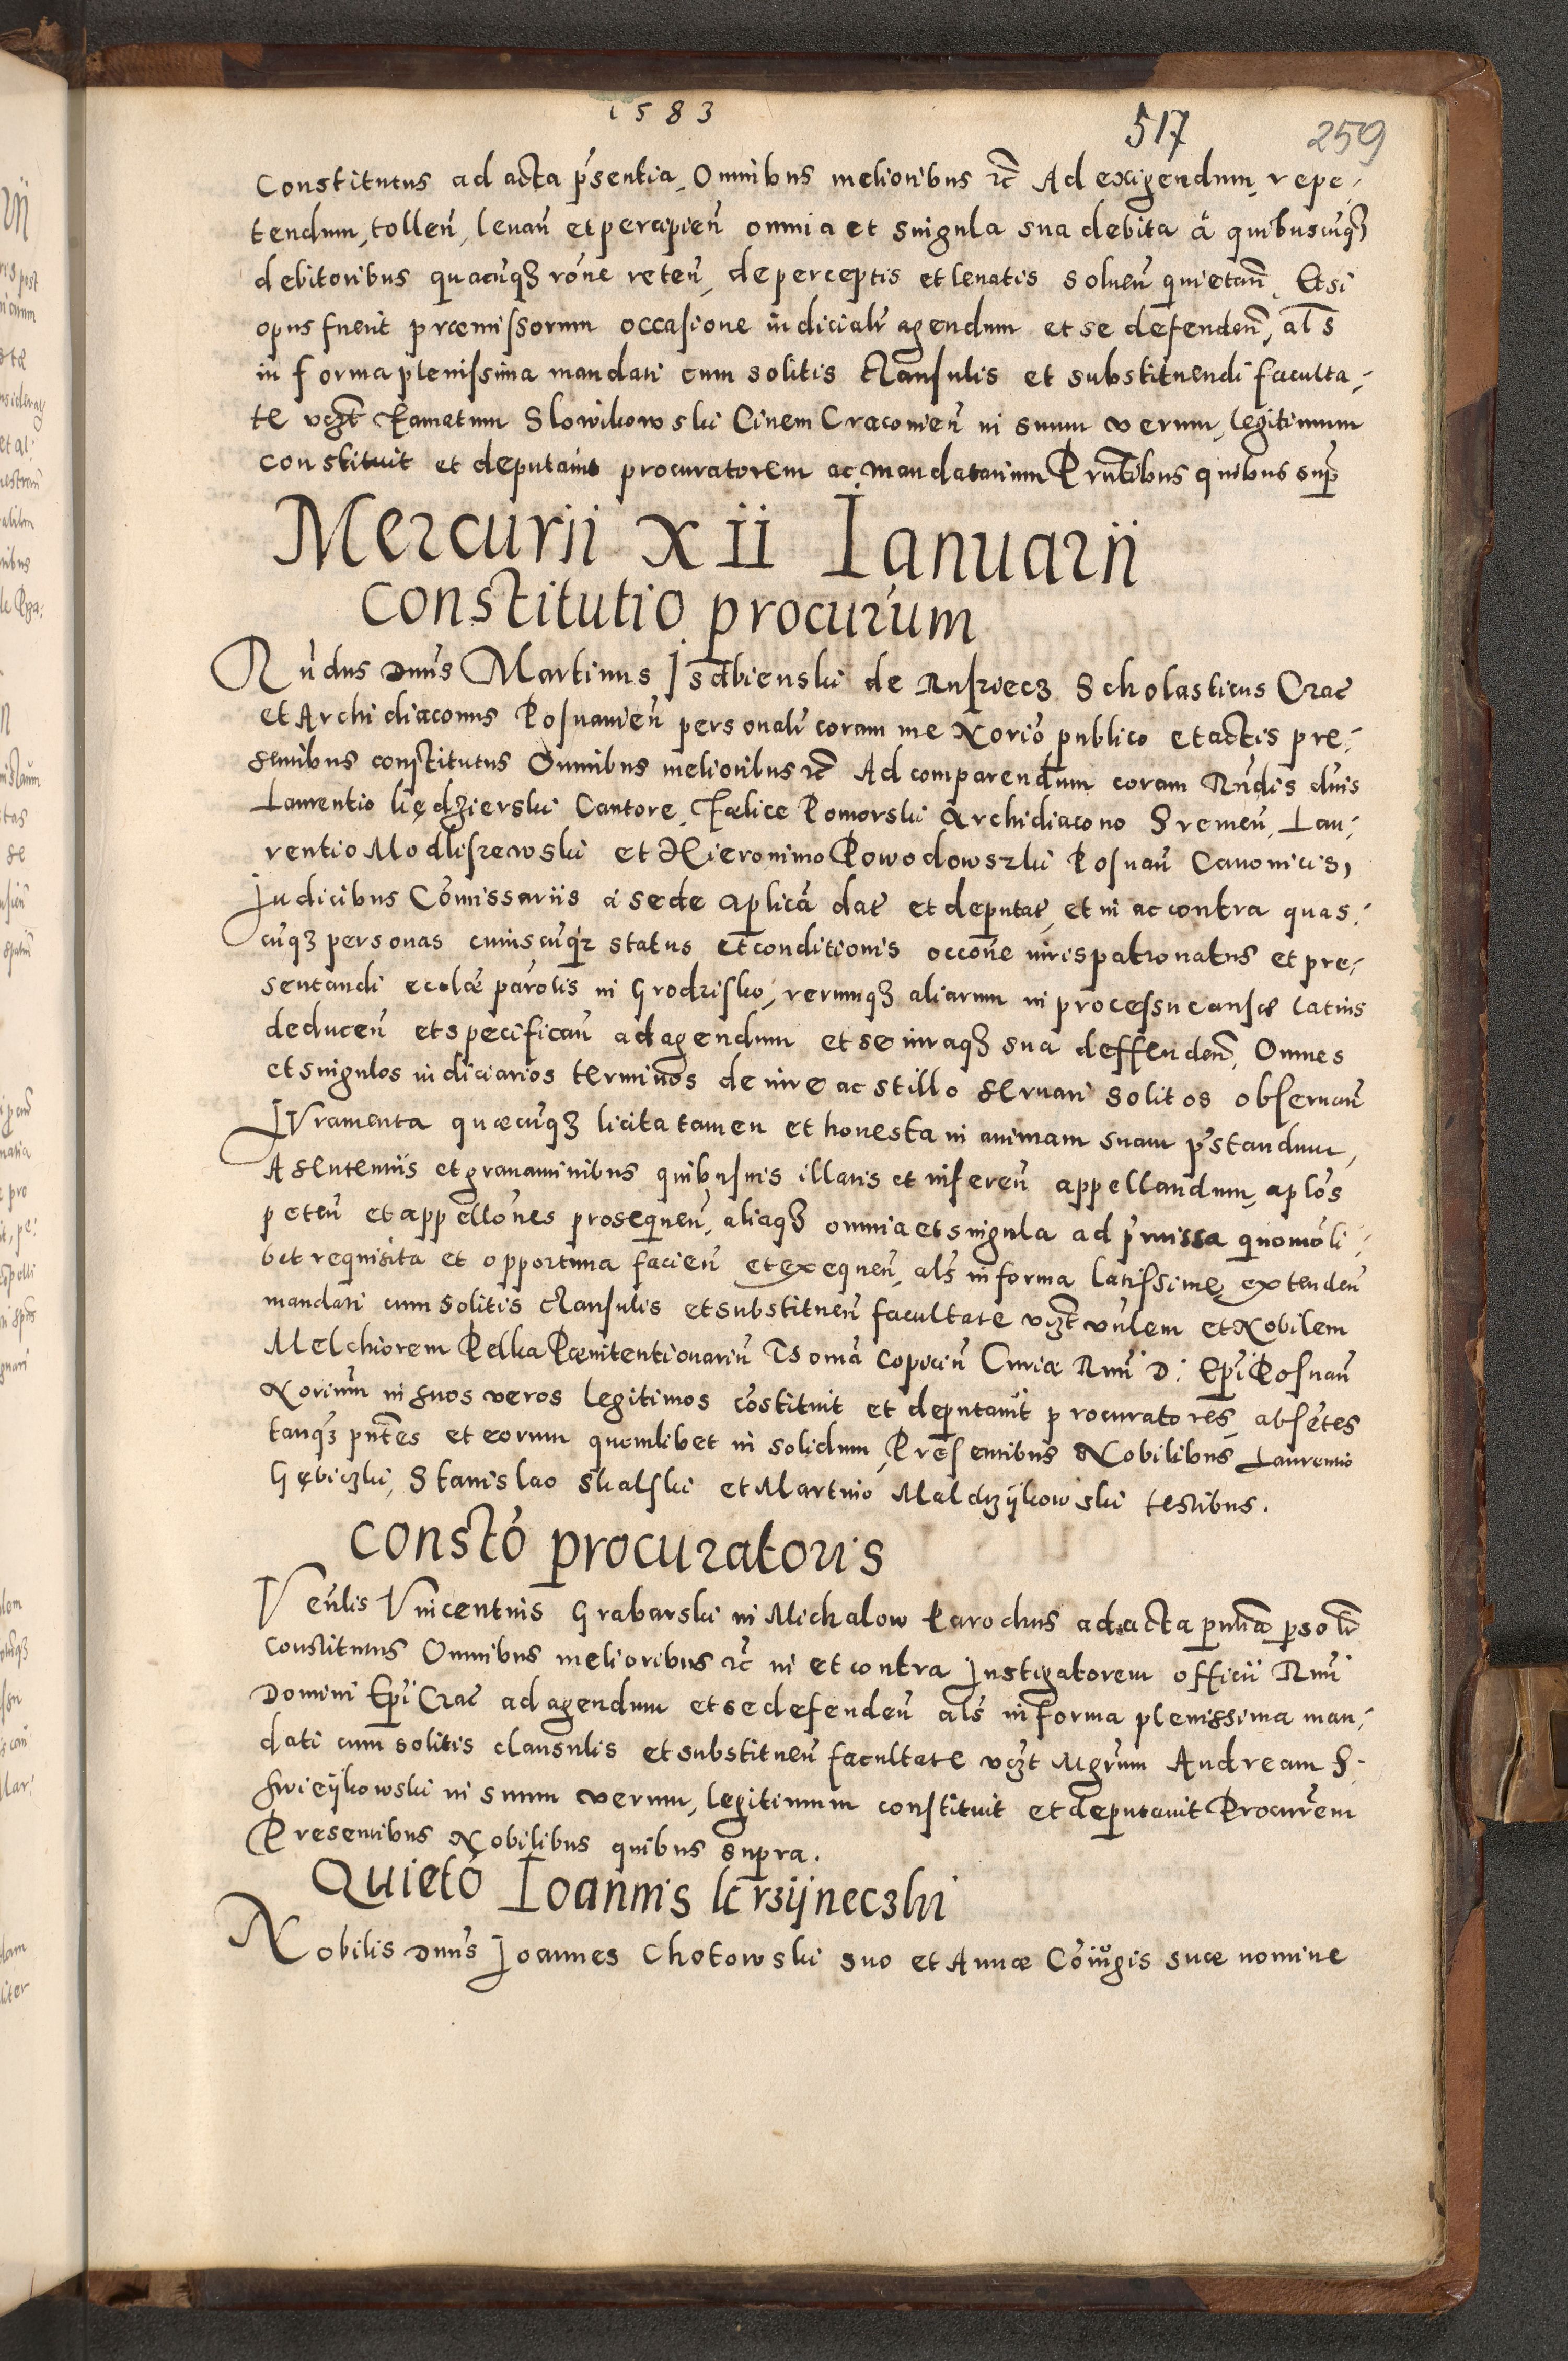 1583
517 259
Constitutus ad acta p̃sentia, Omnibus melioribus ꝛc̃ Ad exigendum, repe-
tendum, tolleñ, leuañ et percipieñ omnia et singula sua debita à quibuscũqꝫ
debitoribus quacũqꝫ rõne reteñ, de perceptis et leuatis solueñ quietañ. Et si
opus fuerit præmissorum occasione iudicialr̃ agendum et se defendeñ, al̃s
in forma plenissima mandati cum solitis clausulis et substituendi faculta-
te vcꝫt̃ Famatum Slowikowski Ciuem Cracouieñ in suum verum, legitimum
constituit et deputauit procuratorem ac mandatarium Pñtibus quibus sup̃
Mercurii XII Ianuarii
Constitutio procur̃um
Rñdus Dñus Martinus Isdbienski de Rusziecz Scholasticus Crac̃
et Archidiaconus Posnanieñ personalr̃ coram me Norio̊ publico et actis pre-
sentibus constitutus Omnibus melioribus ꝛc̃ Ad comparendum coram Rñdis dñis
Laurentio kiędzierski Cantore, Fælice Pomorski Archidiacono Sremeñ, Lau-
rentio Modliszewski et Hieronimo Powodowszki Posnañ Canonicis,
Iudicibus Com̃issariis à sede aplicã dat̃ et deputat̃, et in ac contra quas-
cũqꝫ personas cuiuscũqꝫ status et conditionis occõne iuris patronatus et pre-
sentandi ecclæ̃ parõlis in Grodzisko, rerumqꝫ aliarum in processu causæ latius
deduceñ et specificañ ad agendum et se iuraqꝫ sua deffendeñ, Omnes
et singulos iudiciarios terminos de iure ac stillo seruari solitos obseruañ
Iuramenta quæcũqꝫ licita tamen et honesta in animam suam p̃standum,
A sententiis et grauaminibus quibusuis illatis et infereñ appellandum, aplõs
peteñ et appellõnes prosequeñ, aliaqꝫ omnia et singula ad p̃missa quomõli-
bet requisita et opportuna facieñ et exequeñ, al̃s in forma latissime extendeñ
mandati cum solitis clausulis et substitueñ facultate vcꝫt̃ vñlem et Nobilem
Melchiorem Pelka Pœnitentionariũ Tsomã copiciũ Curiæ Rm̃i D: Ep̃i Posnañ
Noriũm in suos veros legitimos cõstituit et deputauit procuratores, absẽtes
tanqꝫ pñtes et eorum quemlibet in solidum, Presentibus Nobilibus Laurentio
Gębiczki, Stanislao Skalski et Martino Maldrzijkowski testibus.
Constõ procuratoris
Veñlis Vincentius Grabarski in Michalow Parochus ad acta pñtia p̃solr̃
constitutus Omnibus melioribus ꝛc̃ in et contra Instigatorem officii Rm̃i
Domini Ep̃i Crac̃ ad agendum et se defendeñ al̃s in forma plenissima man-
dati cum solitis clausulis et substitueñ facultate vcꝫt̃ Mgr̃um Andream S-
swieijkowski in suum verum, legitimum constituit et deputauit Procur̃em
Presentibus Nobilibus quibus supra.
Quietõ Ioannis krzijneczki
Nobilis Dñus Ioannes Chotowski suo et Annæ Coniũgis suæ nomine